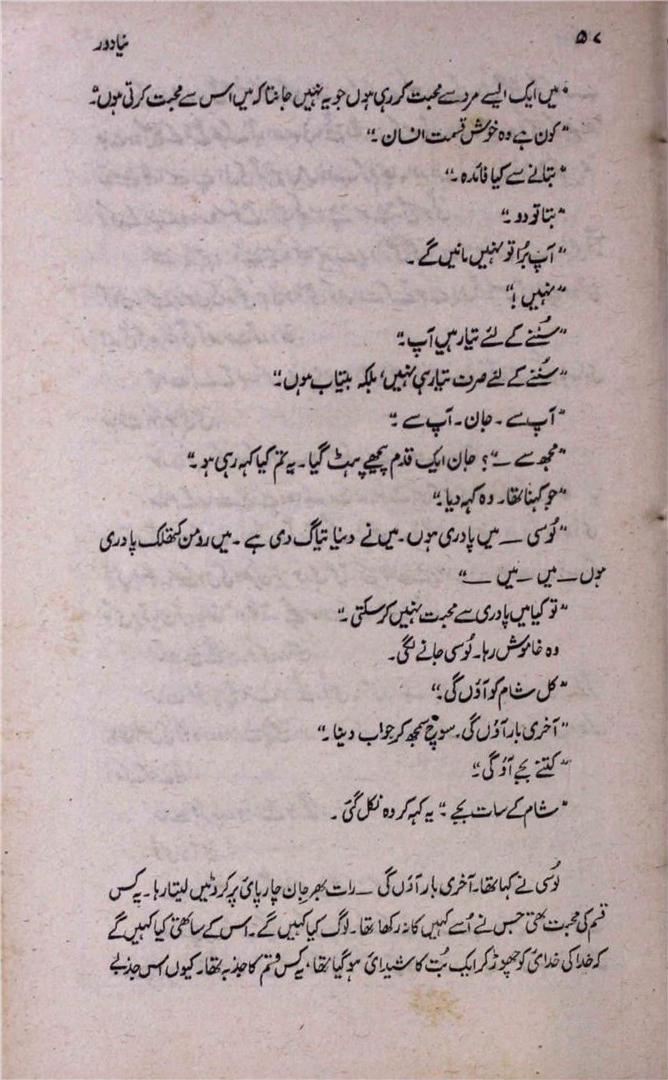 ۵۷ نیا دور
"میں ایک ایسے مرد سے محبت کر رہی ہوں جو یہ نہیں جانتا کہ میں اس سے محبت کرتی ہوں۔"
"کون ہے وہ خوش قسمت انسان۔"
"بتانے سے کیا فائدہ۔"
"بتا تو دو۔"
"آپ بُرا تو نہیں مانیں گے۔
"نہیں!"
"سُننے کے لئے تیار ہیں آپ۔"
"سُننے کے لئے صرف تیار ہی نہیں، بلکہ بیتاب ہوں۔"
"آپ سے۔ جان۔ آپ سے۔"
"مجھ سے ـــ"؟ جان ایک قدم پیچھے ہٹ گیا۔ یہ تم کیا کہہ رہی ہو۔"
"جو کہنا تھا۔ وہ کہہ دیا۔"
"لُوسی ـــ میں پادری ہوں۔ میں نے دنیا تیاگ دی ہے۔ میں رومن کیتھلک پادری
ہوں ـــ میں ـــ میں ـــ"
"تو کیا میں پادری سے محبت نہیں کر سکتی۔"
وہ خاموش رہا۔ لُوسی جانے لگی۔
"کل شام کو آؤں گی۔"
"آخری بار آؤں گی۔ سوچ سمجھ کر جواب دینا۔"
"کتنے بجے آؤ گی۔"
"شام کے سات بجے۔" یہ کہہ کر وہ نکل گئی۔
لُوسی نے کہا تھا۔ آخری بار آؤں گی ـــ رات بھر جان چارپائی پر کروٹیں لیتا رہا۔ یہ کس
قسم کی محبت تھی جس نے اُسے کہیں کا نہ رکھا تھا۔ لوگ کیا کہیں گے۔ اس کے ساتھی کیا کہیں گے
کہ خدا کی خدائی کو چھوڑ کر ایک بُت کا شیدائی ہو گیا تھا، یہ کس قسم کا جذبہ تھا۔ کیوں اس جذبے